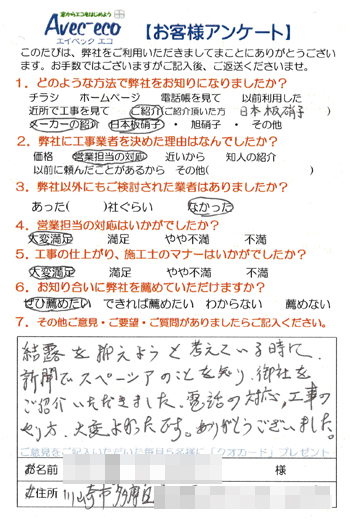 窓からエコをはじめよう
Avec-eco
エイベック エコ
【お客様アンケート】
このたびは、弊社をご利用いただきましてまことにありがとうござい
ます。お手数ではございますがご記入後、ご返送くださいませ。
1．どのような方法で弊社をお知りになりましたか？
チラシ ホームページ 電話帳を見て 以前利用した
近所で工事を見て ご紹介(ご紹介頂いた方 日本板硝子 )
メーカーの紹介(日本板硝子・旭硝子・その他
2．弊社に工事業者を決めた理由はなんでしたか？
価格 営業担当の対応 近いから 知人の紹介
以前に頼んだことがあるから その他( )
3．弊社以外にもご検討された業者はありましたか？
あった( )社ぐらい なかった
4．営業担当の対応はいかがでしたか？
大変満足 満足 やや不満 不満
5．工事の仕上がり、施工士のマナーはいかがでしたか？
大変満足 満足 やや不満 不満
6．お知り合いに弊社を薦めていただけますか？
ぜひ薦めたい できれば薦めたい わからない 薦めない
7．その他ご意見・ご要望・ご質問がありましたらご記入ください。
結露を抑えようと考えている時に、
新聞でスペーシアのことを知り、御社を
ご紹介いただきました。電話の対応、工事の
やり方、大変よかったです。ありがとうございました。
ご意見をご記入いただいた毎月5名様に「クオカード」プレゼント
お名前 様
ご住所 川崎市多摩区